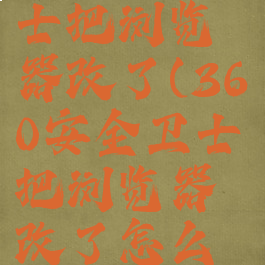 士把浏览
器改了(36
0安全卫士
把浏览器
改了怎么